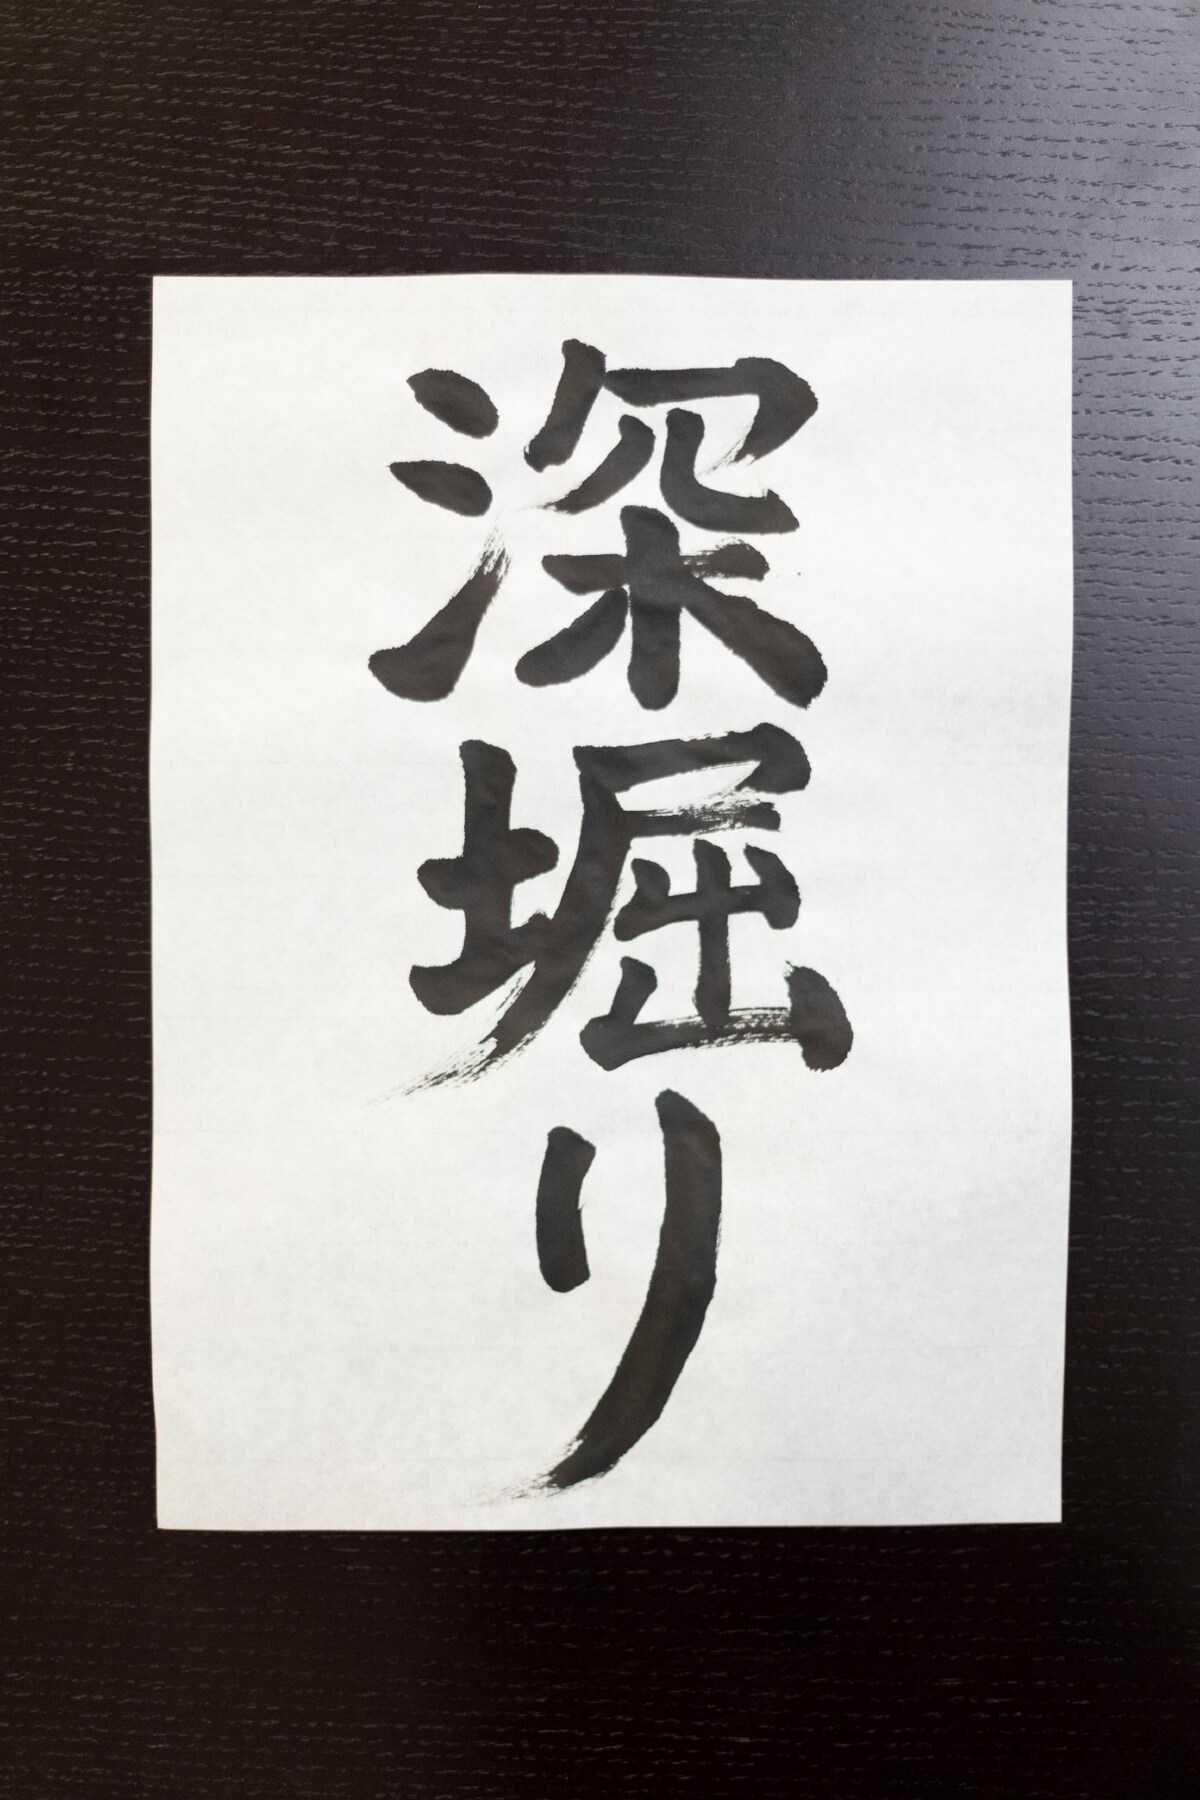 深堀り